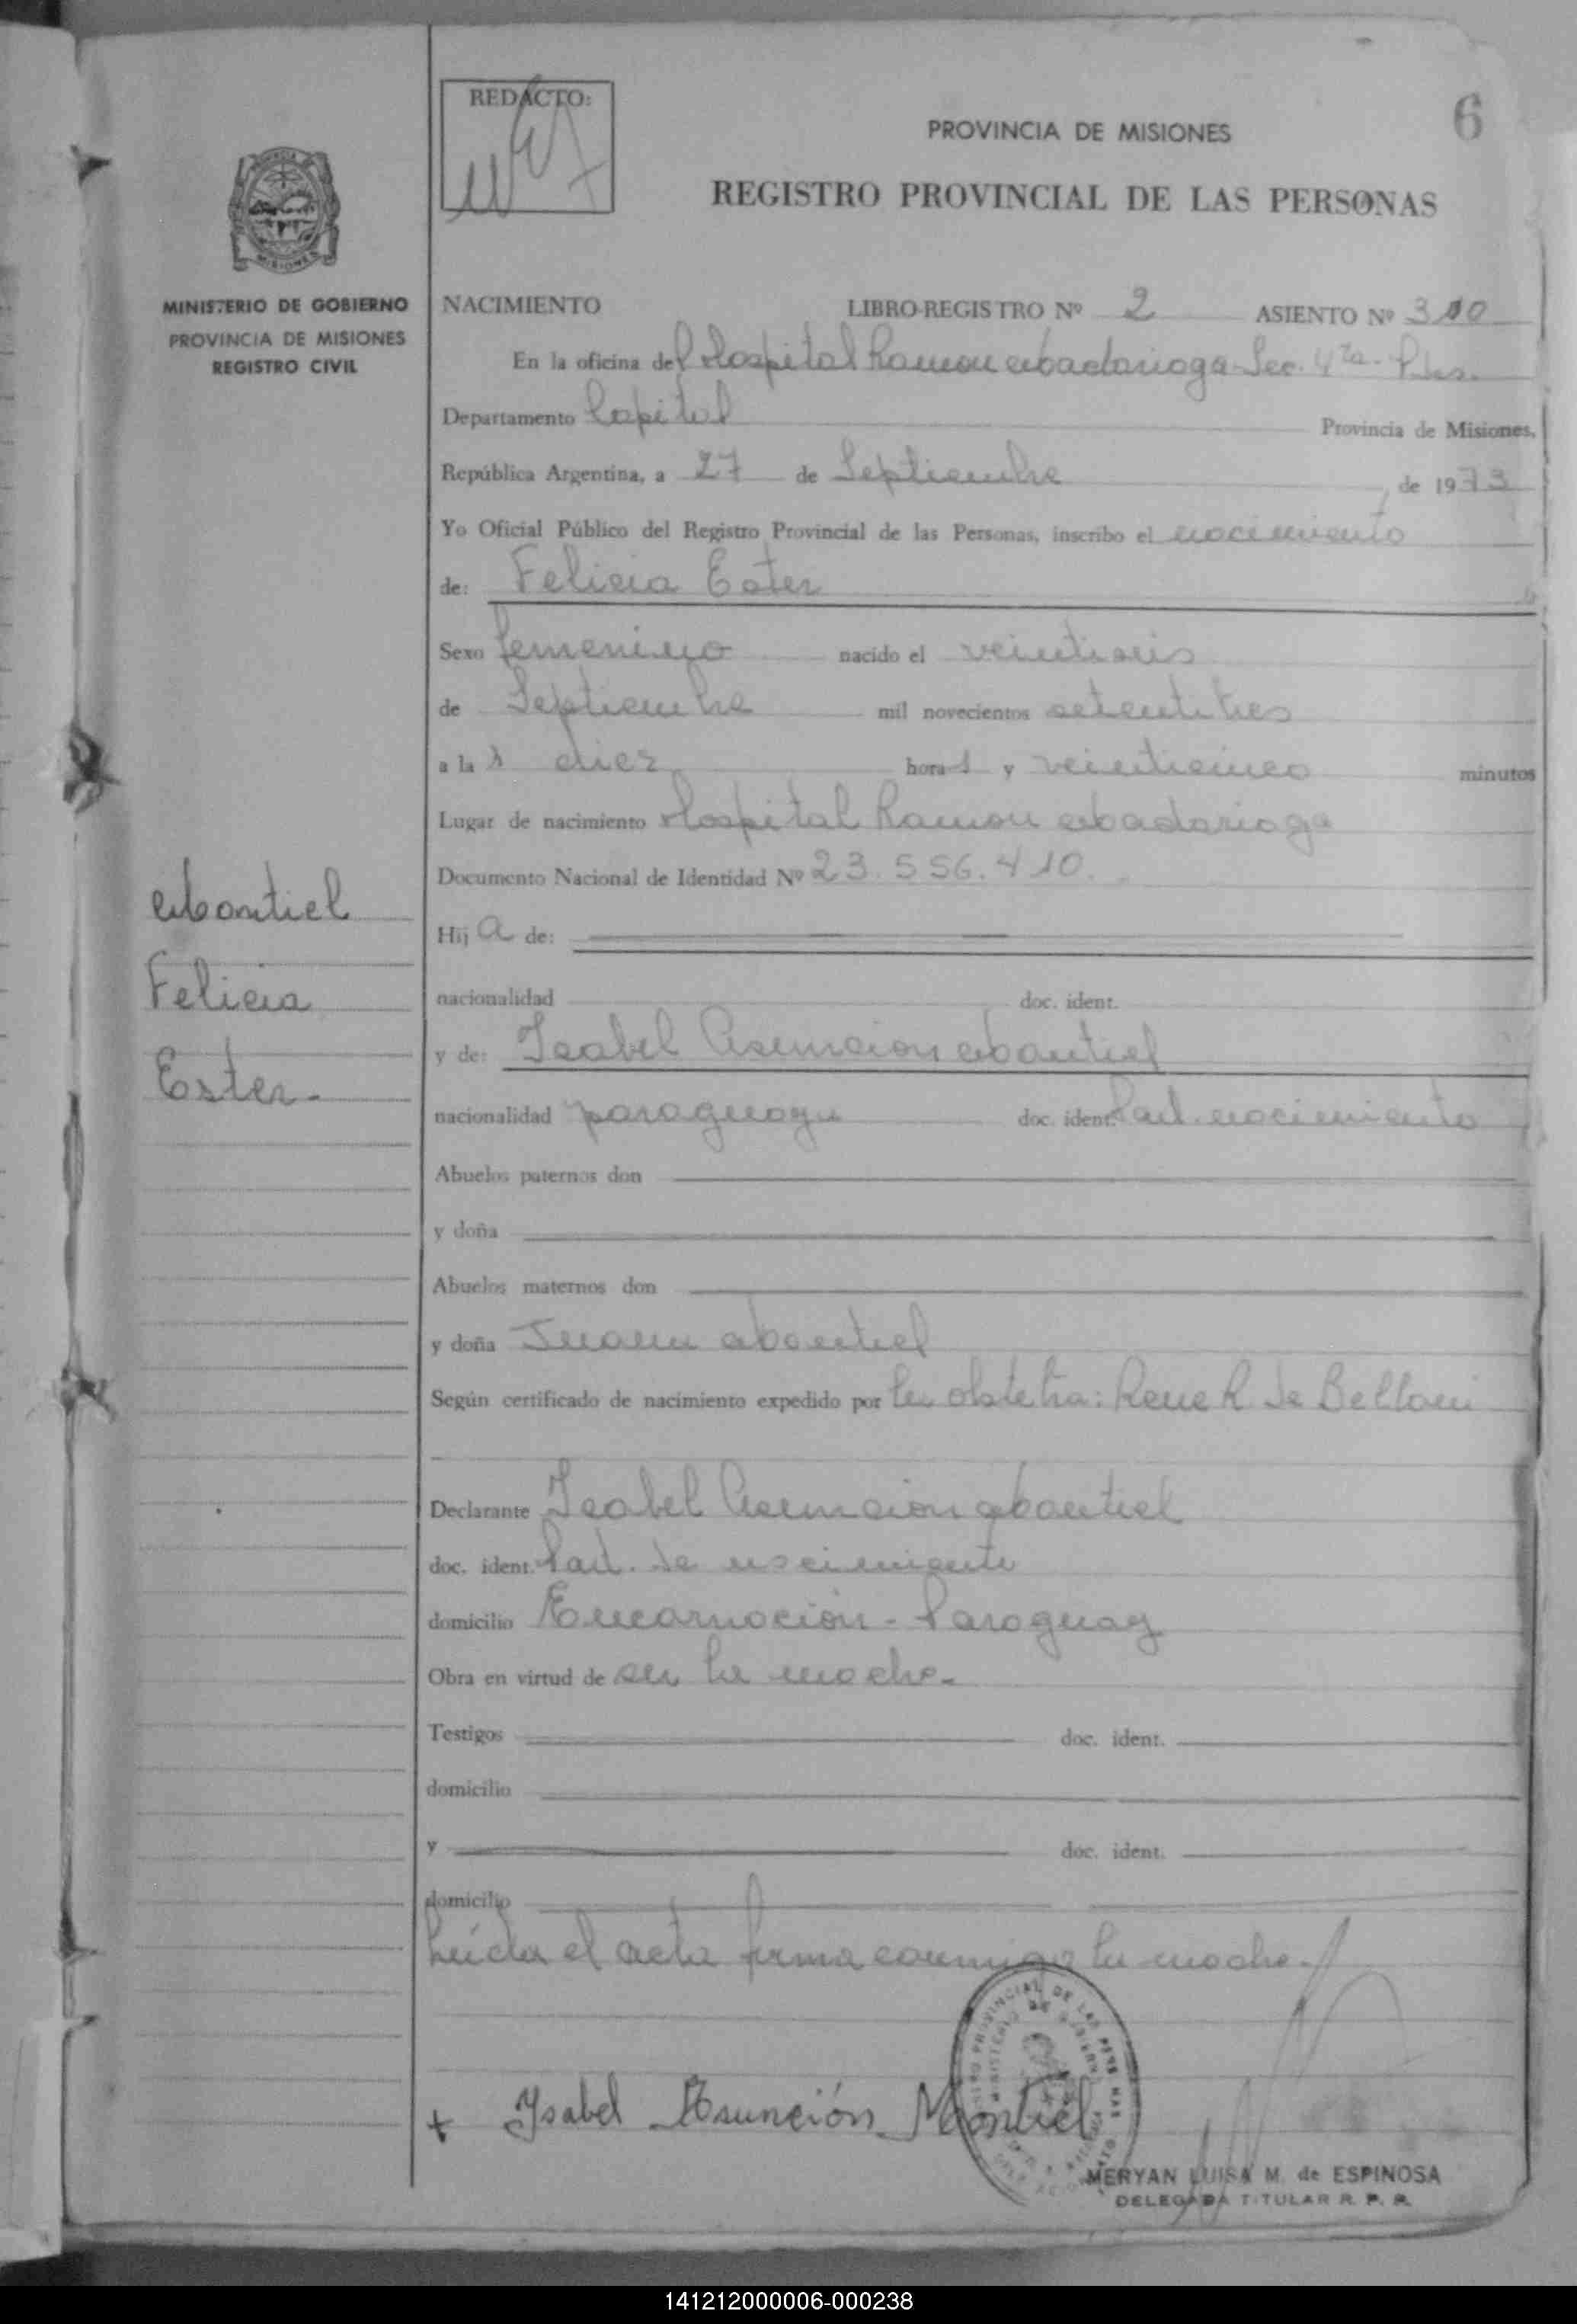 REDACTO:
6
PROVINCIA DE MISIONES
REGISTRO PROVINCIAL DE LAS PERSONAS
MINISTERIO DE GOBIERNO
PROVINCIA DE MISIONES
REGISTRO CIVIL
NACIMIENTO LIBRO-REGISTRO Nº 2 ASIENTO Nº 310
En la oficina del Hospital Ramon Madariaga Sec. 4ta - Pdas.
Departamento Capital Provincia de Misiones,
República Argentina, a 27 de Septiembre, de 1973
Yo Oficial Público del Registro Provincial de las Personas, inscribo el nacimiento
de: Felicia Ester
Sexo femenino nacido el veintiseis
de Septiembre mil novecientos setentitres
a las diez horas y veinticinco minutos
Lugar de nacimiento Hospital Ramon Madariaga
Documento Nacional de Identidad Nº 23.556.410.
Montiel
Felicia
Ester.
Hija de:
nacionalidad doc. ident.
y de: Isabel Asuncion Montiel
nacionalidad paraguaya doc. ident. Part. nacimiento
Abuelos paternos don
y doña
Abuelos maternos don
y doña Juana Montiel
Según certificado de nacimiento expedido por la obstetra: Rene R. de Belloni
Declarante Isabel Asuncion Montiel
doc. ident. Part. de nacimiento
domicilio Encarnación - Paraguay
Obra en virtud de ser la madre.
Testigos doc. ident.
domicilio
y doc. ident.
domicilio
Leída el acta firma conmigo la madre.
+ Ysabel Asunción Montiel
MERYAN LUISA M. de ESPINOSA
DELEGADA TITULAR R. P. P.
141212000006-000238